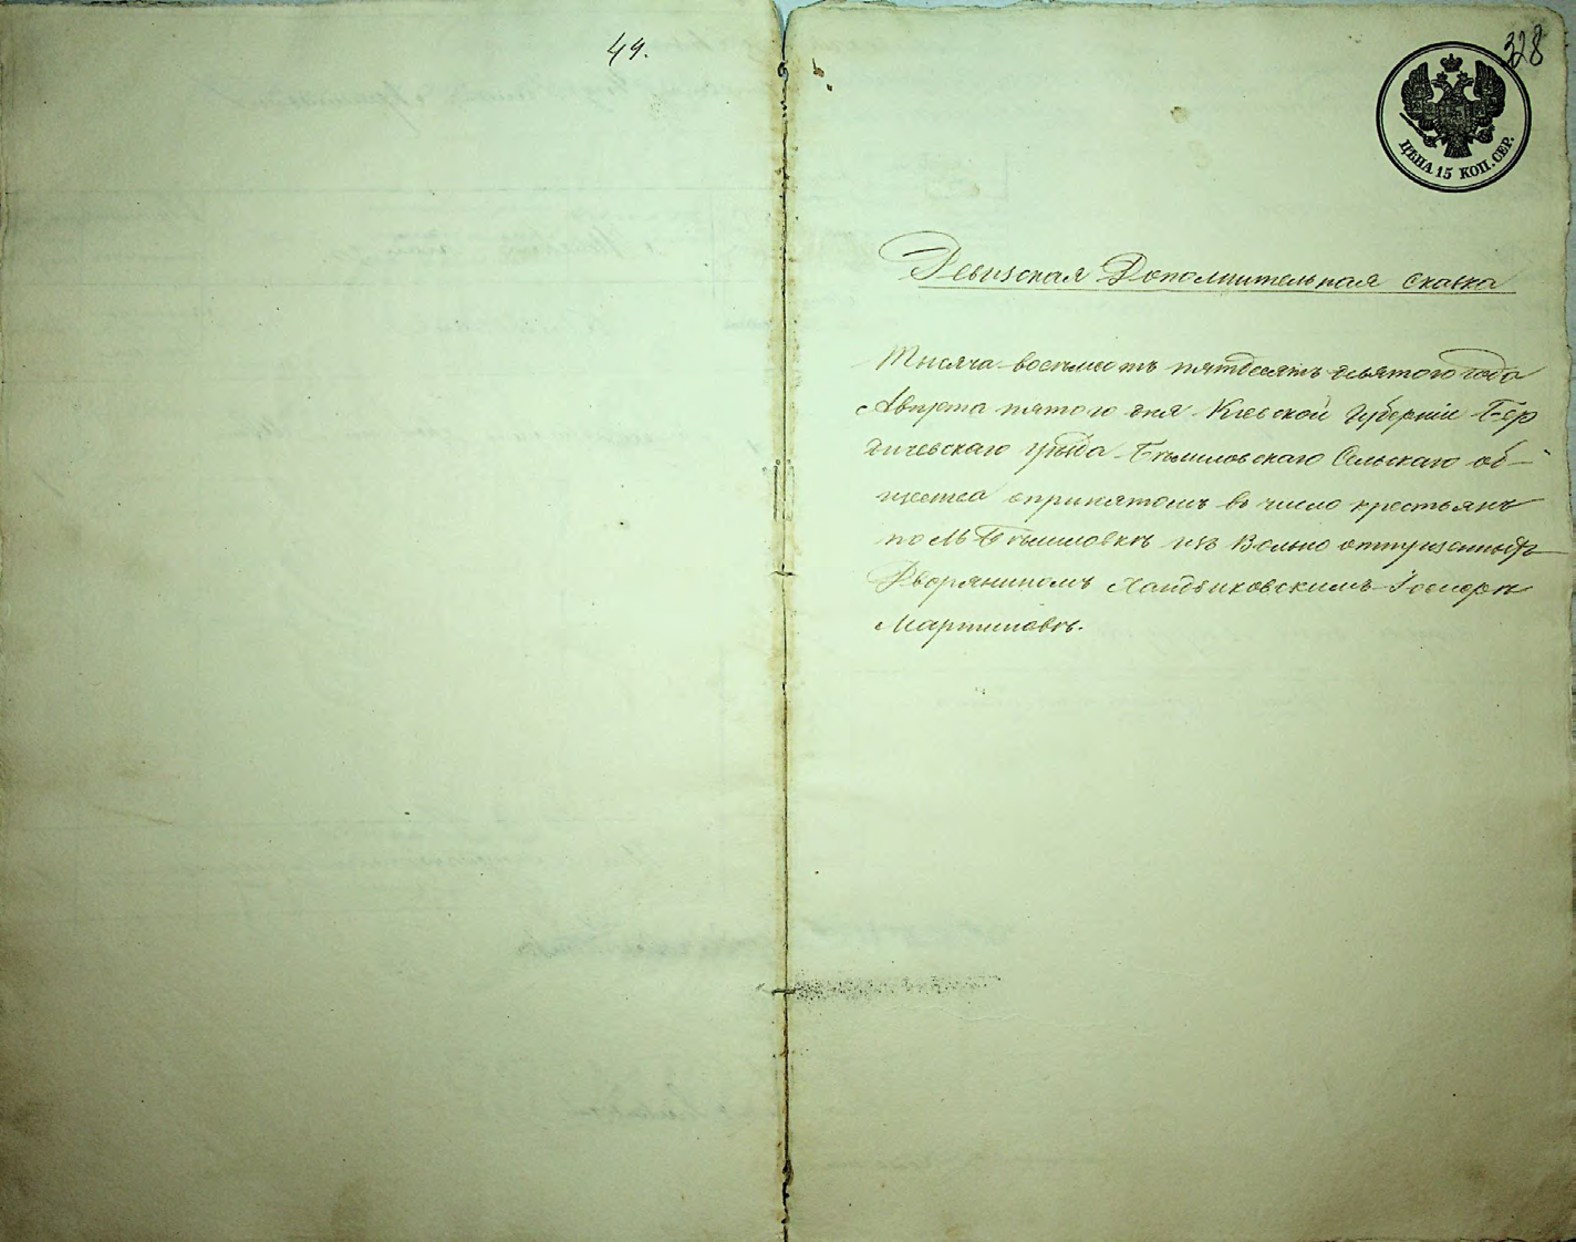 49.
328
ЦѢНА 15 КОП. СЕР.
Ревизская Дополнительная сказка
Тысяча восемьсотъ пятдесятъ девятого года
Августа пятого дня Кіевской Губерніи Бер
дичевскаго уѣзда Бѣлиловскаго Сельскаго об-
щества опринятомъ въ число крестьянъ
по М Бѣлиловкѣ изъ Вольно отпущенныхъ
Дворяниномъ Іосифѣ
Мартиновѣ.